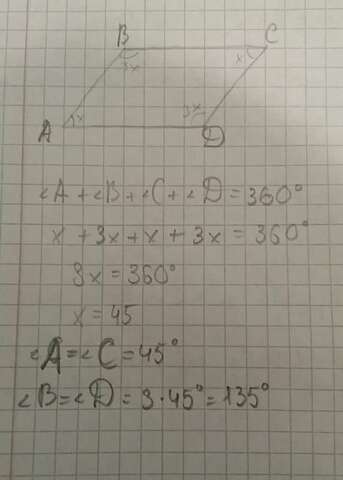 B C
3x x
3x
A x D
∠A + ∠B + ∠C + ∠D = 360°
x + 3x + x + 3x = 360°
8x = 360°
x = 45
∠A = ∠C = 45°
∠B = ∠D = 3 · 45° = 135°